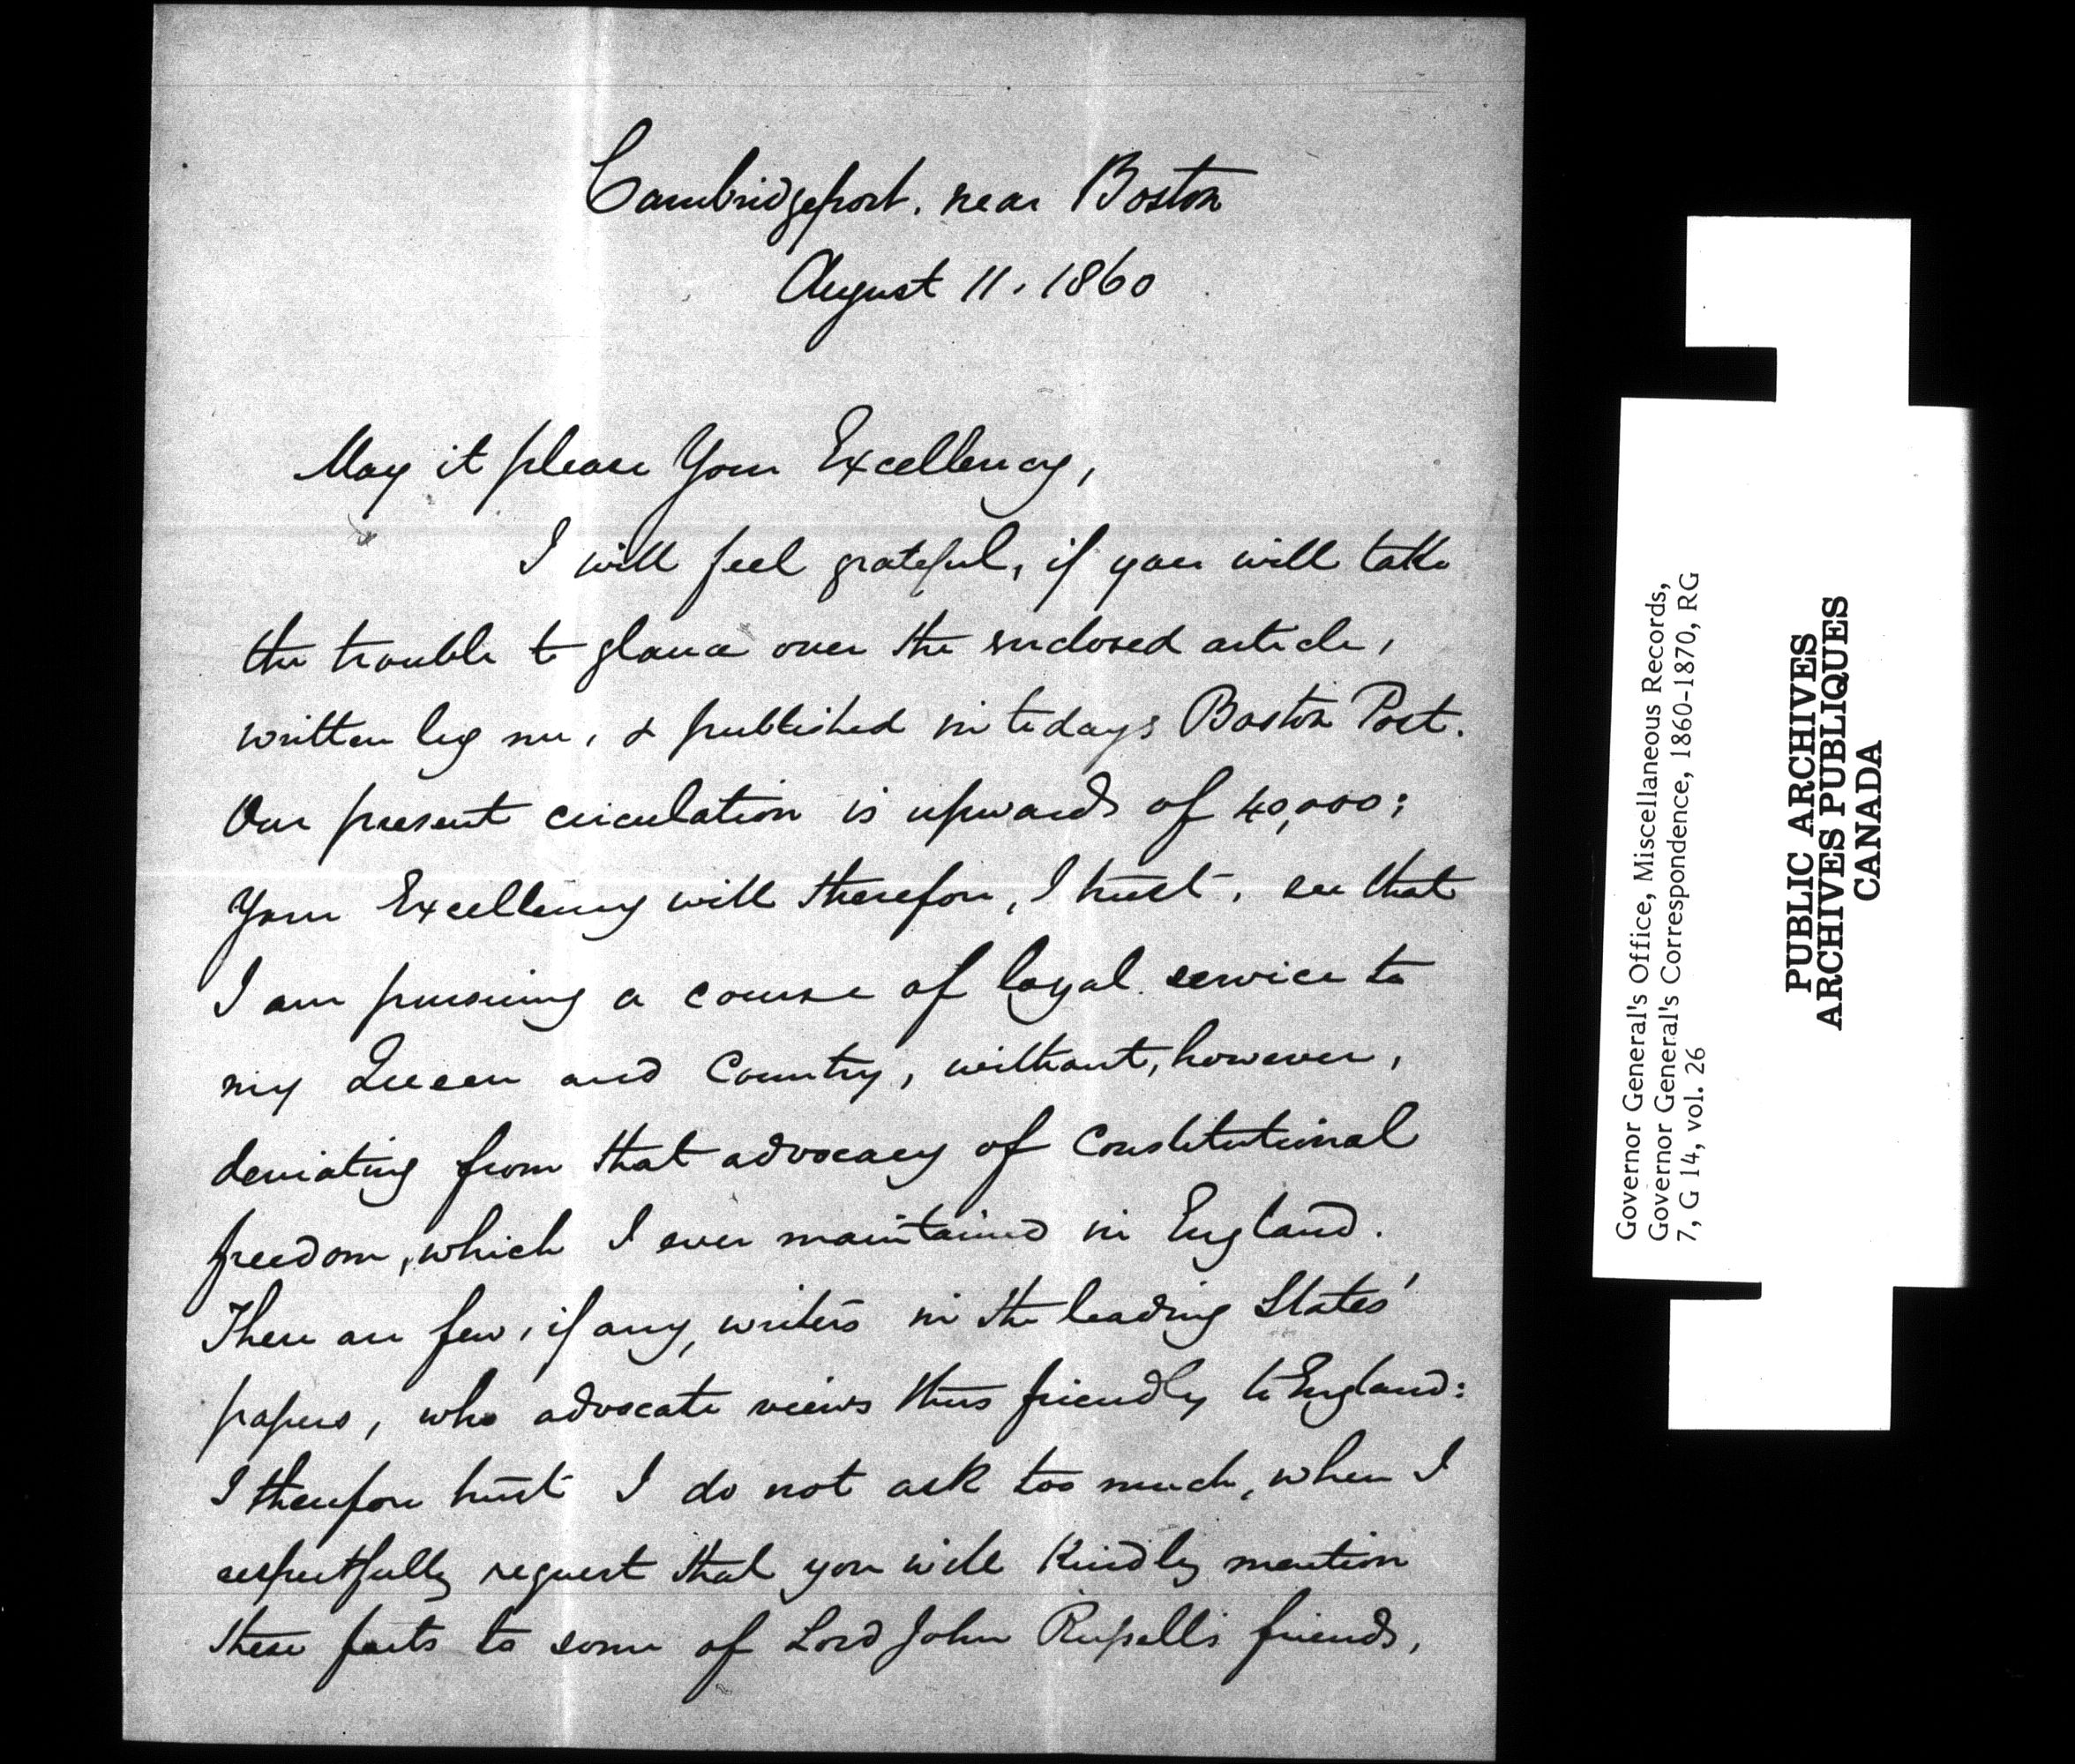 Cambridgeport. near Boston
August 11. 1860
May it please Your Excellency,
I will feel grateful, if you will take
the trouble to glance over the enclosed article,
written by me, & published in todays Boston Post.
Our present circulation is upwards of 40,000;
Your Excellency will therefore, I trust, see that
I am pursuing a course of loyal service to
my Queen and Country, without, however,
deviating from that advocacy of Constitutional
freedom, which I ever maintained in England.
There are few, if any, writers in the leading States'
papers, who advocate views thus friendly to England:
I therefore trust I do not ask too much, when I
respectfully request that you will kindly mention
these facts to some of Lord John Russell's friends,
Governor General's Office, Miscellaneous Records,
Governor General's Correspondence, 1860-1870, RG
7, G 14, vol. 26
PUBLIC ARCHIVES
ARCHIVES PUBLIQUES
CANADA